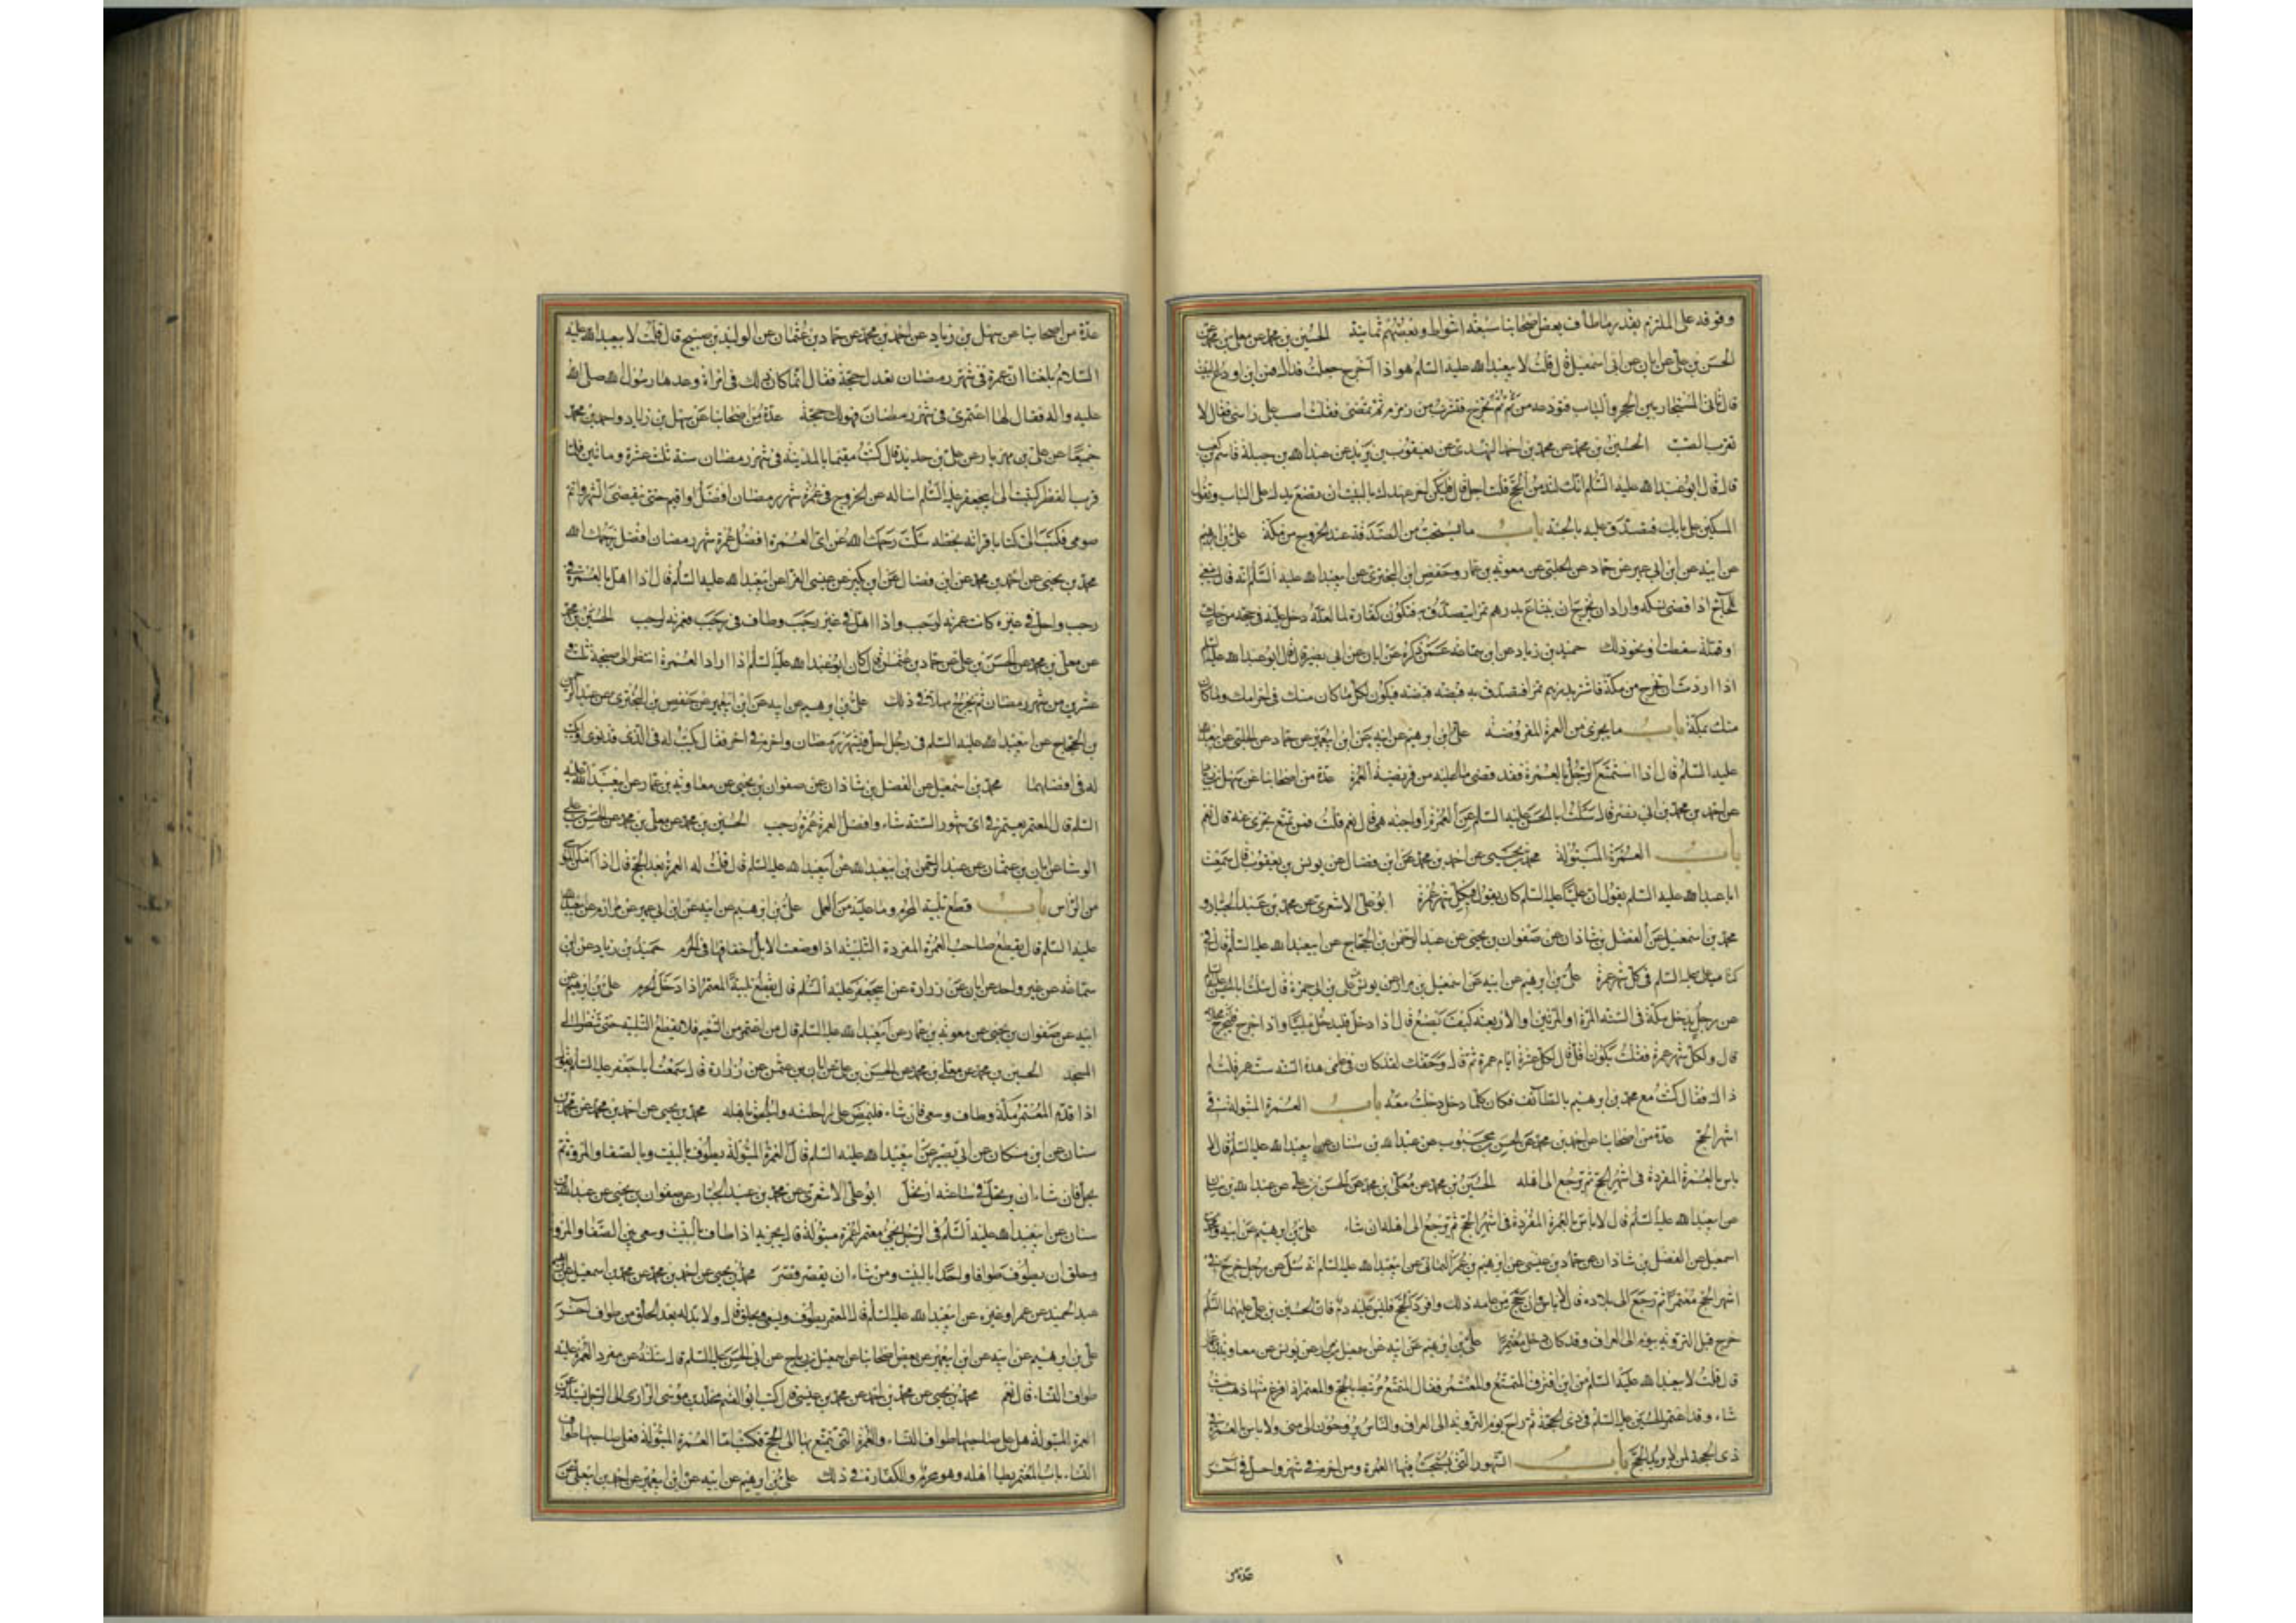 وقوفه على الملتزم بقدر ما طاف بعض اصحابنا سبعة اشواط وبعضهم ثمانية الحسين بن محمد عن معلى بن محمد عن
الحسن بن علي عن ابان عن ابي اسمعيل قال قلت لابي عبدالله عليه السلام هو اذا اخرج جعلت فداك فمن اين اودع البيت
قال تأتي المستجار بين الحجر والباب فتودعه من ثم ثم تخرج فتشرب من زمزم ثم تمضي فقلت اصب على راسي فقال لا
تقرب الصب الحسين بن محمد عن محمد بن احمد النهدي عن يعقوب بن يزيد عن عبدالله بن جبلة قاسم بن
قال قال ابو عبدالله عليه السلام انك لتدمن الحج قلت اجل قال فليكن اخر عهدك بالبيت ان تضع يدك على الباب وتقول
المسكين على بابك فتصدق عليه بالجنة باب ما يستحب من الصدقة عند الخروج من مكة علي بن ابرهيم
عن ابيه عن ابن ابي عمير عن حماد عن الحلبي عن معوية بن عمار وحفص ابن البختري عن ابي عبدالله عليه السلم انه قال ينبغي
للحاج اذا قضى نسكه واراد ان يخرج ان يبتاع بدرهم تمرا يتصدق به فتكون كفارة لما لعله دخل عليه في حجه من حك
او قملة سقطت او نحو ذلك حميد بن زياد عن ابن سماعه عمن ذكره عن ابان عن ابي بصير قال قال ابو عبدالله عليه السلم
اذا اردت ان تخرج من مكة فاشتر بدرهم تمرا فتصدق به قبضه قبضه فيكون لكل ما كان منك في احرامك وما كان
منك بمكة باب ما يجزي من العمرة المفروضة علي بن ابرهيم عن ابيه عن ابن ابي عمير عن حماد عن الحلبي عن ابي عبدالله
عليه السلم قال اذا استمتع الرجل بالعمرة فقد قضى ما عليه من فريضة العمرة عدة من اصحابنا عن سهل بن زياد
عن احمد بن محمد بن ابي نصر قال سئلت ابا الحسن عليه السلم عن العمرة أواجبة هي قال نعم قلت فمن تمتع يجزي عنه قال نعم
باب العمرة المبتولة محمد بن يحيى عن احمد بن محمد عن ابن فضال عن يونس بن يعقوب قال سمعت
ابا عبدالله عليه السلم يقول ان عليا عليه السلم كان يقول في كل شهر عمرة ابو علي الاشعري عن محمد بن عبد الجبار و
محمد بن اسمعيل عن الفضل بن شاذان عن صفوان بن يحيى عن عبد الرحمن بن الحجاج عن ابي عبدالله عليه السلم قال في
كتاب علي عليه السلم في كل شهر عمرة علي بن ابرهيم عن ابيه عن اسمعيل بن مرار عن يونس عن علي بن ابي حمزة قال سئلت ابا الحسن عليه السلم
عن رجل يدخل مكة في السنة المرة او المرتين او الاربعة كيف يصنع قال اذا دخل فليدخل ملبيا واذا خرج فليخرج محلا
قال ولكل شهر عمرة فقلت يكون اقل قال لكل عشرة ايام عمرة ثم قال وحقك لقد كان في عامي هذه السنة ست عمر قلت لم
ذاك فقال كنت مع محمد بن ابرهيم بالطائف فكان كلما دخل دخلت معه باب العمرة المبتولة في
اشهر الحج عدة من اصحابنا عن احمد بن محمد عن الحسن بن محبوب عن عبدالله بن سنان عن ابي عبدالله عليه السلم قال لا
باس بالعمرة المفردة في اشهر الحج ثم ترجع الى اهله الحسين بن محمد عن معلى بن محمد عن الحسن بن علي عن عبدالله بن سنان
عن ابي عبدالله عليه السلم قال لا باس بالعمرة المفردة في اشهر الحج ثم يرجع الى اهله ان شاء علي بن ابرهيم عن ابيه ومحمد بن
اسمعيل عن الفضل بن شاذان عن حماد بن عيسى عن ابرهيم بن عمر اليماني عن ابي عبدالله عليه السلم انه سئل عن رجل خرج في
اشهر الحج معتمرا ثم رجع الى بلاده قال لا باس وان حج من عامه ذلك وافرد الحج فليس عليه دم فان الحسين بن علي عليهما السلم
خرج قبل التروية بيوم الى العراق وقد كان دخل معتمرا علي بن ابرهيم عن ابيه عن اسمعيل بن مرار عن يونس عن معاوية بن عمار
قال قلت لابي عبدالله عليه السلم من اين افترق المتمتع والمعتمر فقال المتمتع مرتبط بالحج والمعتمر اذا فرغ منها ذهب حيث
شاء وقد اعتمر الحسين عليه السلم في ذي الحجة ثم راح يوم التروية الى العراق والناس يروحون الى منى ولا باس بالعمرة في
ذي الحجة لمن لا يريد الحج باب الشهور التي يستحب فيها العمرة ومن احرم في شهر واحل في آخر
عدة من
عدة من اصحابنا عن سهل بن زياد عن احمد بن محمد عن حماد بن عثمان عن الوليد بن صبيح قال قلت لابي عبدالله عليه
السلام بلغنا ان عمرة في شهر رمضان تعدل حجة فقال انما كان ذلك في امراة وعدها رسول الله صلى الله
عليه واله فقال لها اعتمري في شهر رمضان فهو لك حجة عدة من اصحابنا عن سهل بن زياد واحمد بن محمد
جميعا عن علي بن مهزيار عن علي بن حديد قال كنت مقيما بالمدينة في شهر رمضان سنة ثلث عشرة ومائتين فلما
قرب الفطر كتبت الى ابي جعفر عليه السلم اساله عن الخروج في عمرة شهر رمضان افضل او اقيم حتى ينقضي الشهر واتم
صومي فكتب الي كتابا قراته بخطه سئلت رحمك الله عن اي العمرة افضل عمرة شهر رمضان افضل يرحمك الله
محمد بن يحيى عن احمد بن محمد عن ابن فضال عن ابن بكير عن عيسى الفرا عن ابي عبدالله عليه السلم قال اذا اهل بالعمرة في
رجب واحل في غيره كانت عمرته لرجب واذا اهل في غير رجب وطاف في رجب فعمرته لرجب الحسين بن محمد
عن معلى بن محمد عن الحسن بن علي عن حماد بن عثمان قال كان ابو عبدالله عليه السلم اذا اراد العمرة انتظر الى صبيحة ثلث و
عشرين من شهر رمضان ثم يخرج مهلا في ذلك علي بن ابرهيم عن ابيه عن ابن ابي عمير عن حفص بن البختري عن عبد الرحمن
بن الحجاج عن ابي عبدالله عليه السلم في رجل احرم في شهر رمضان واحل في اخر فقال يكتب له في الذي قد نوى او يكتب
له في افضلهما محمد بن اسمعيل عن الفضل بن شاذان عن صفوان بن يحيى عن معاوية بن عمار عن ابي عبدالله عليه
السلم قال المعتمر يعتمر في اي شهور السنة شاء وافضل العمرة عمرة رجب الحسين بن محمد عن معلى بن محمد عن الحسن بن علي
الوشا عن ابان بن عثمان عن عبد الرحمن بن ابي عبدالله عن ابي عبدالله عليه السلم قال قلت له العمرة بعد الحج قال اذا امكن الموسى
من الراس باب قطع تلبية المحرم وما عليه من العمل علي بن ابرهيم عن ابيه عن ابن ابي عمير عن مرازم عن ابي عبدالله
عليه السلم قال يقطع صاحب العمرة المفردة التلبية اذا وضعت الابل اخفافها في الحرم حميد بن زياد عن ابن
سماعة عن غير واحد عن ابان عن زرارة عن ابي جعفر عليه السلم قال يقطع تلبية المعتمر اذا دخل الحرم علي بن ابرهيم عن
ابيه عن صفوان بن يحيى عن معوية بن عمار عن ابي عبدالله عليه السلم قال من اعتمر من التنعيم فلا يقطع التلبية حتى ينظر الى
المسجد الحسين بن محمد عن معلى بن محمد عن الحسن بن علي عن ابان بن عثمن عن زرارة قال سمعت ابا جعفر عليه السلم يقول
اذا قدم المعتمر مكة وطاف وسعى فان شاء فليمض على راحلته وليلحق باهله محمد بن يحيى عن احمد بن محمد عن محمد بن
سنان عن ابن مسكان عن ابي بصير عن ابي عبدالله عليه السلم قال العمرة المبتولة يطوف بالبيت وبالصفا والمروة ثم
يحل فان شاء ان يرتحل في ساعته ارتحل ابو علي الاشعري عن محمد بن عبد الجبار عن صفوان بن يحيى عن عبدالله بن
سنان عن ابي عبدالله عليه السلم في الرجل يجيء معتمرا عمرة مبتولة قال يجزيه اذا طاف بالبيت وسعى بين الصفا والمروة
وحلق ان يطوف طوافا واحدا بالبيت ومن شاء ان يقصر قصر محمد بن يحيى عن احمد بن محمد عن محمد بن اسمعيل عن ابرهيم بن
عبد الحميد عن عمر او غيره عن ابي عبدالله عليه السلم قال المعتمر يطوف ويسعى ويحلق قال ولا بد له بعد الحلق من طواف آخر
علي بن ابرهيم عن ابيه عن ابن ابي عمير عن بعض اصحابنا عن اسمعيل بن رباح عن ابي الحسن عليه السلم قال سئلته عن مفرد العمرة عليه
طواف النساء قال نعم محمد بن يحيى عن محمد بن احمد عن محمد بن عيسى قال كتب ابو القسم مخلد بن موسى الرازي الى الرجل يسئله عن
العمرة المبتولة هل على صاحبها طواف النساء والعمرة التي يتمتع بها الى الحج فكتب اما العمرة المبتولة فعلى صاحبها طواف
النساء باب المعتمر يطا اهله وهو محرم والكفارة في ذلك علي بن ابرهيم عن ابيه عن ابن ابي عمير عن احمد بن ابي علي عن